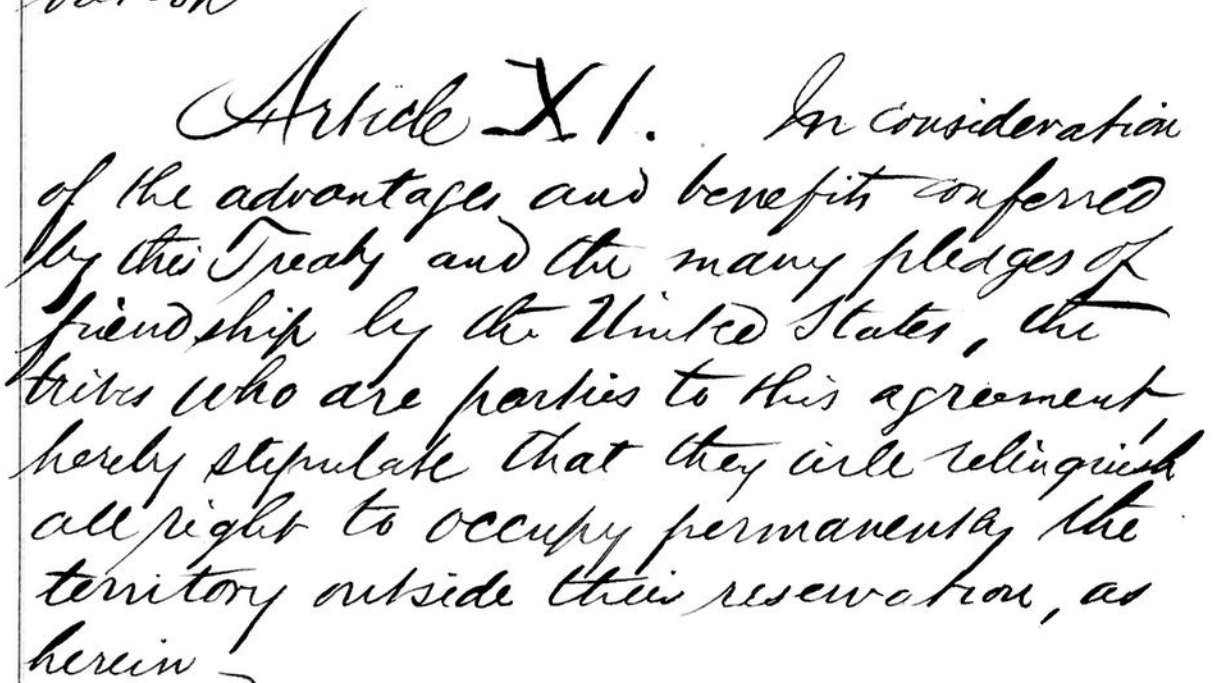 Article XI. In consideration
of the advantages and benefits conferred
by this Treaty and the many pledges of
friendship by the United States, the
tribes who are parties to this agreement,
hereby stipulate that they will relinquish
all right to occupy permanently the
territory outside their reservation, as
herein –